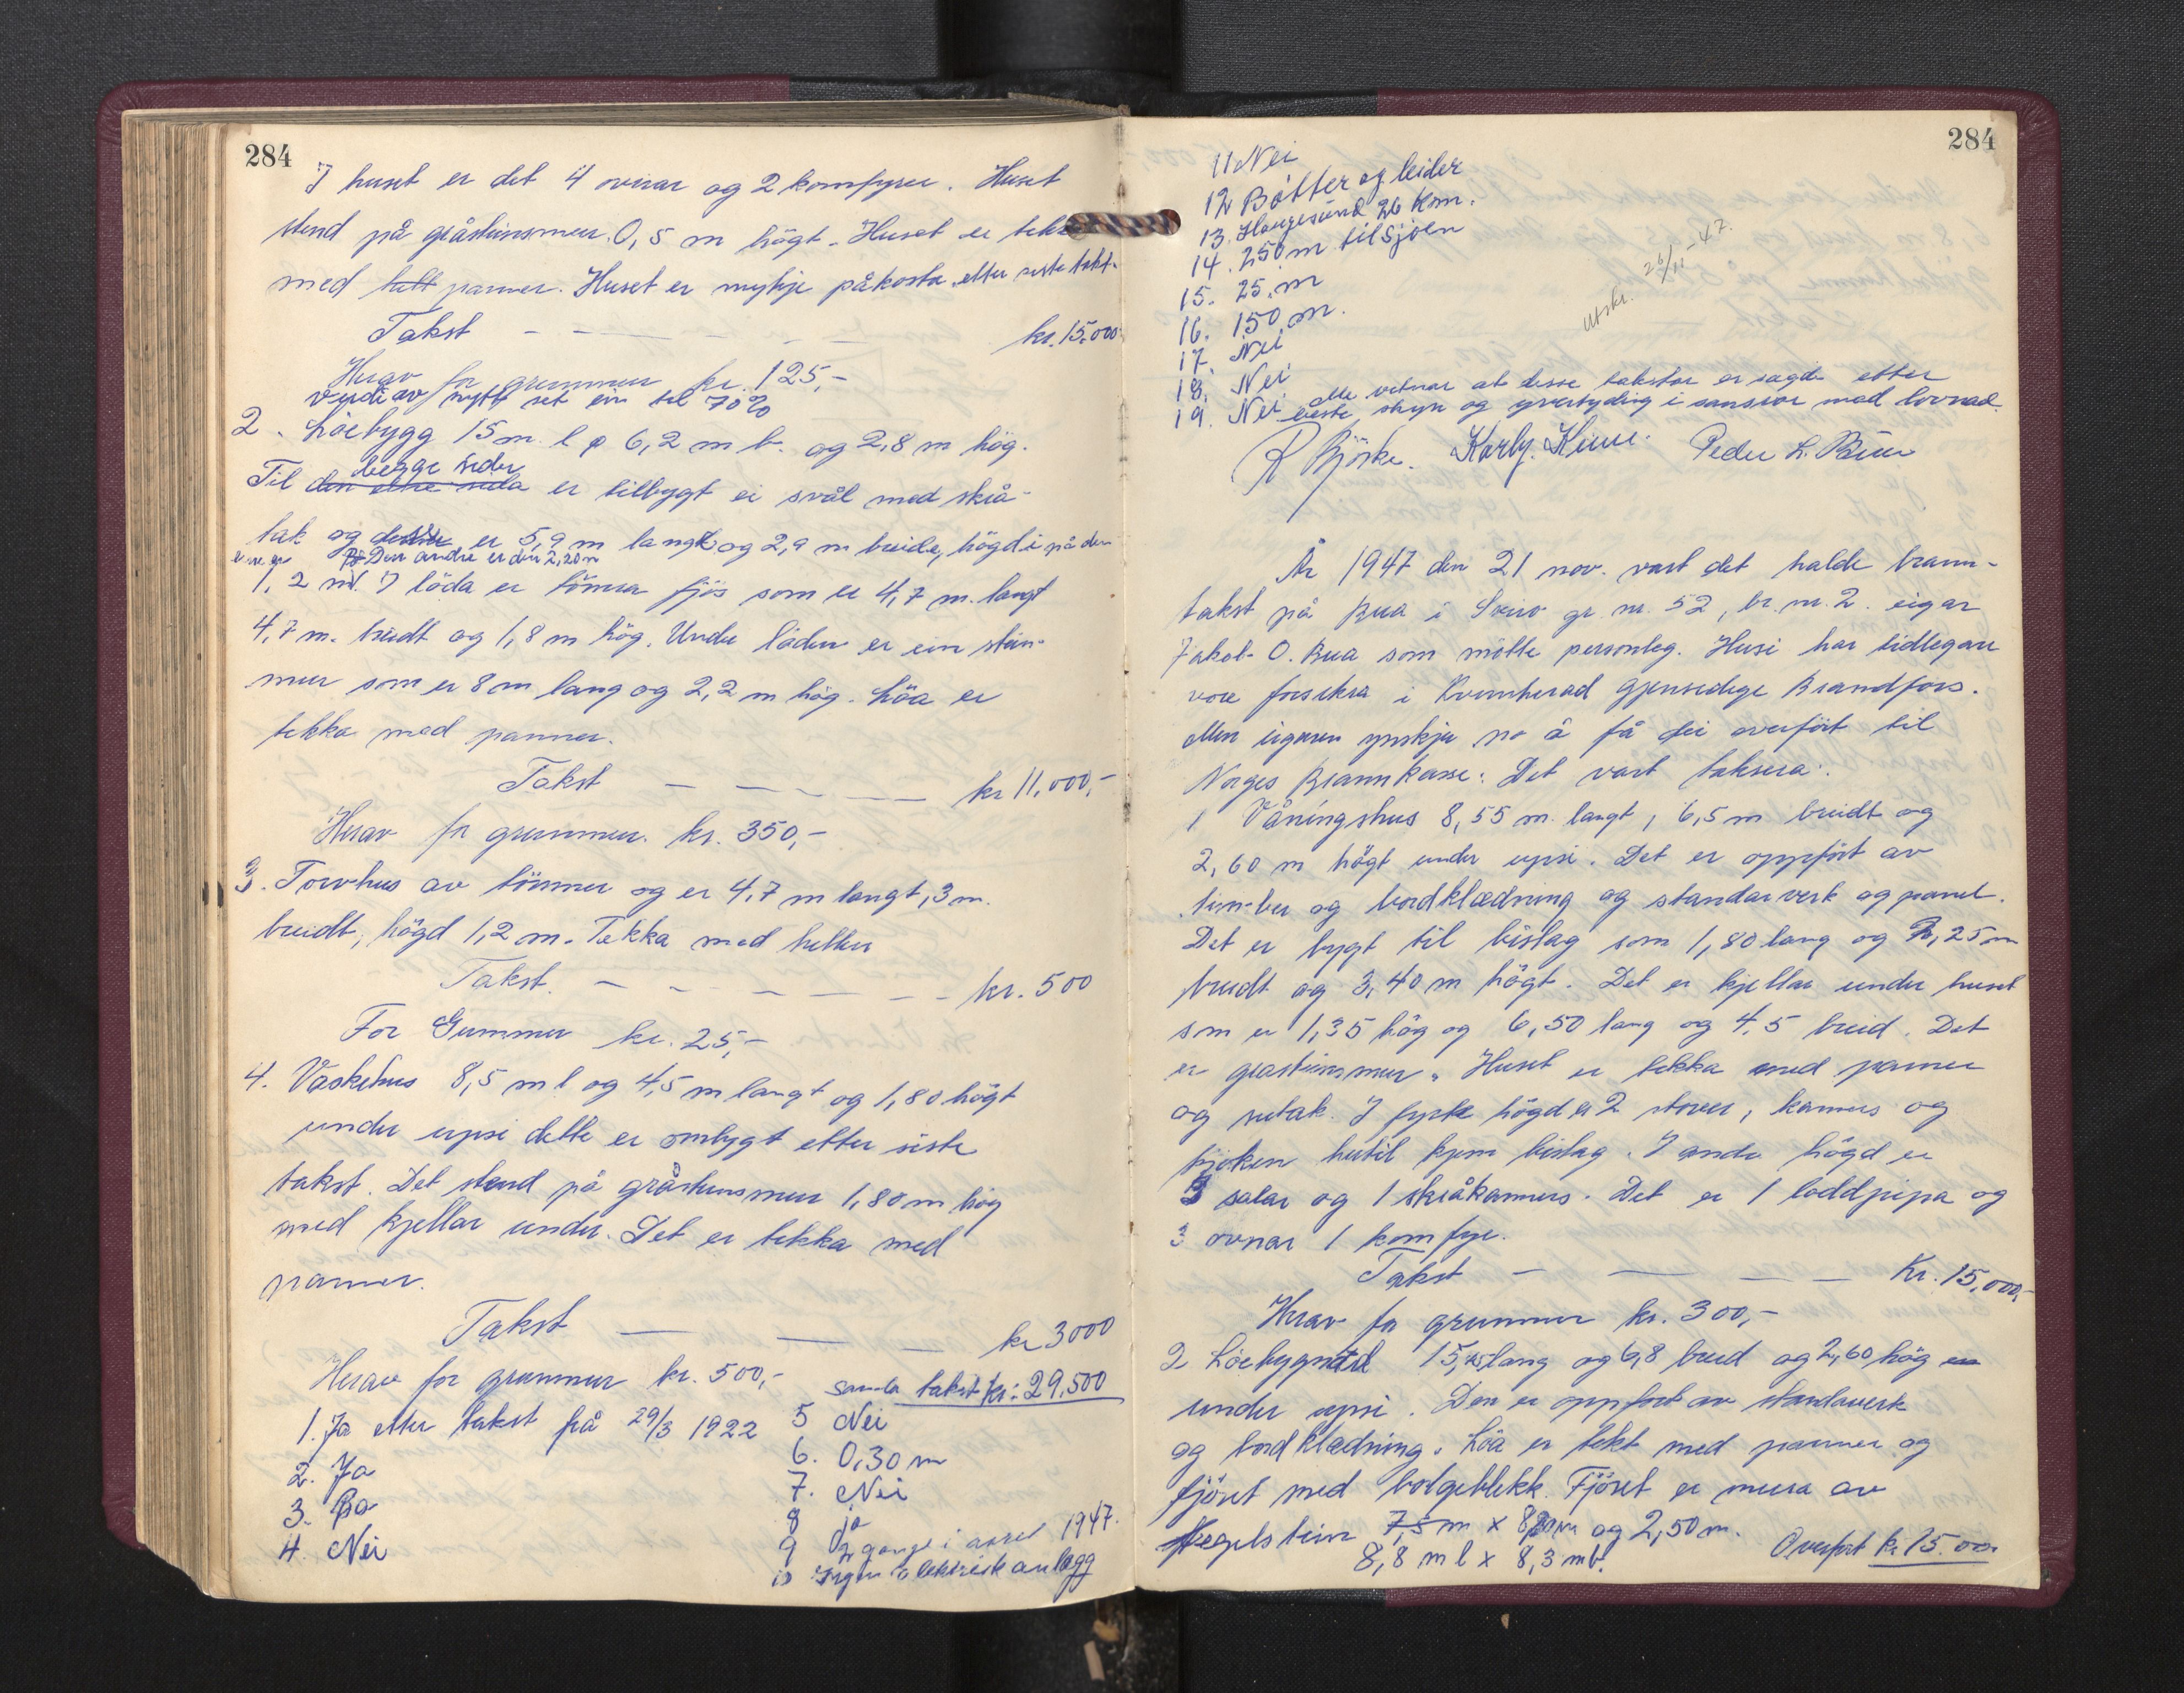 284
I huset er det 4 ovnar og 2 komfyrer. Huset
stend på gråsteinsmur 0,5 m högt. Huset er tekt
med panner. Huset er mykje påkosta etter siste takst.
Takst — — — — kr. 15.000
Herav for grunnmur kr. 125,-
Verdi av nytt set ein til 70%
2. Löebygg 15 m. l 6,2 m b. og 2,8 m hög.
begge sider
Til den eine sida er tilbygt ei svål med skrå-
tak og er 5,9 m lang og 2,9 m breide, högdi på den
eine er Den andre er den 2,20 m
1,2 m. I löda er tömra fjös som er 4,7 m. langt
4,7 m. breidt og 1,8 m hög. Under löden er ein stein-
mur som er 8 m lang og 2,2 m hög. Löa er
tekka med panner.
Takst — — — — kr 11.000,-
Herav for grunnmur. kr. 350,-
3. Torvhus av tömmer og er 4,7 m langt, 3 m.
breidt, högd 1,2 m. Tekka med heller
Takst. — — — — kr. 500
For Grunnmur kr. 25,-
4. Vaskehus 8,5 m l og 4,5 m langt og 1,80 högt
under upsi dette er ombygt etter siste
takst. Det stend på gråsteinsmur 1,80 m hög
med kjellar under. Det er tekka med
panner.
Takst — — — kr 3000
Herav for grunnmur kr. 500,-
samla takst kr: 29,500
1. Ja etter takst frå 29/3 1922
2. Ja
3. Ja
4. Nei
5 Nei
6. 0,30 m
7. Nei
8 ja
9 2 gange i aaret 1947.
10 Ingen elektrisk anlegg
284
11 Nei
12 Bötter og leider
13. Haugesund 26 km.
14. 250 m til Sjöen
15. 25. m
16. 150 m.
17. Nei
18. Nei
19. Nei
Utskr. 26/11-47.
Me vitnar at desse takstar er sagde etter
beste skyn og yvertyding i samsvar med lovnad.
R Björke. Karly. Kinn. Peder L. Bua
År 1947 den 21 nov. vart det halde brann-
takst på Bua i Sveio gr. nr. 52, br. nr. 2. eigar
Jakob O. Bua som mötte personleg. Husi har tidlegare
vore forsikra i Kvinnherad Gjensidige Brandfors.
Men eigaren ynskjer no å få dei overfört til
Norges Brannkasse: Det vart taksera:
1 Våningshus 8,55 m. langt, 6,5 m breidt og
2,60 m högt under upsi. Det er oppfört av
timber og bordklædning og standarverk og panel.
Det er bygt til bislag som 1,80 lang og 2,25 m
breidt og 3,40 m högt. Det er kjellar under huset
som er 1,35 hög og 6,50 lang og 4,5 breid. Det
er gråsteinsmur. Huset er tekka med panner
og sutak. I fyrste högd er 2 stover, kammers og
kjöken hertil kjem bislag. I andre högd er
3 salar og 1 skråkammers. Det er 1 loddpipa og
3 ovnar 1 komfyr.
Takst — — — — Kr. 15,000,-
Herav for grunnmur kr. 300,-
2 Löebygnad 15, lang og 6,8 breid og 2,60 hög
under upsi. Den er oppfört av standaverk
og bordklædning. Löa er tekt med panner og
fjöset med bolgeblekk. Fjöset er mura av
tegelstein 7,5 m x og 2,50 m.
8,8 m l x 8,3 m b.
Overfört kr 15.000